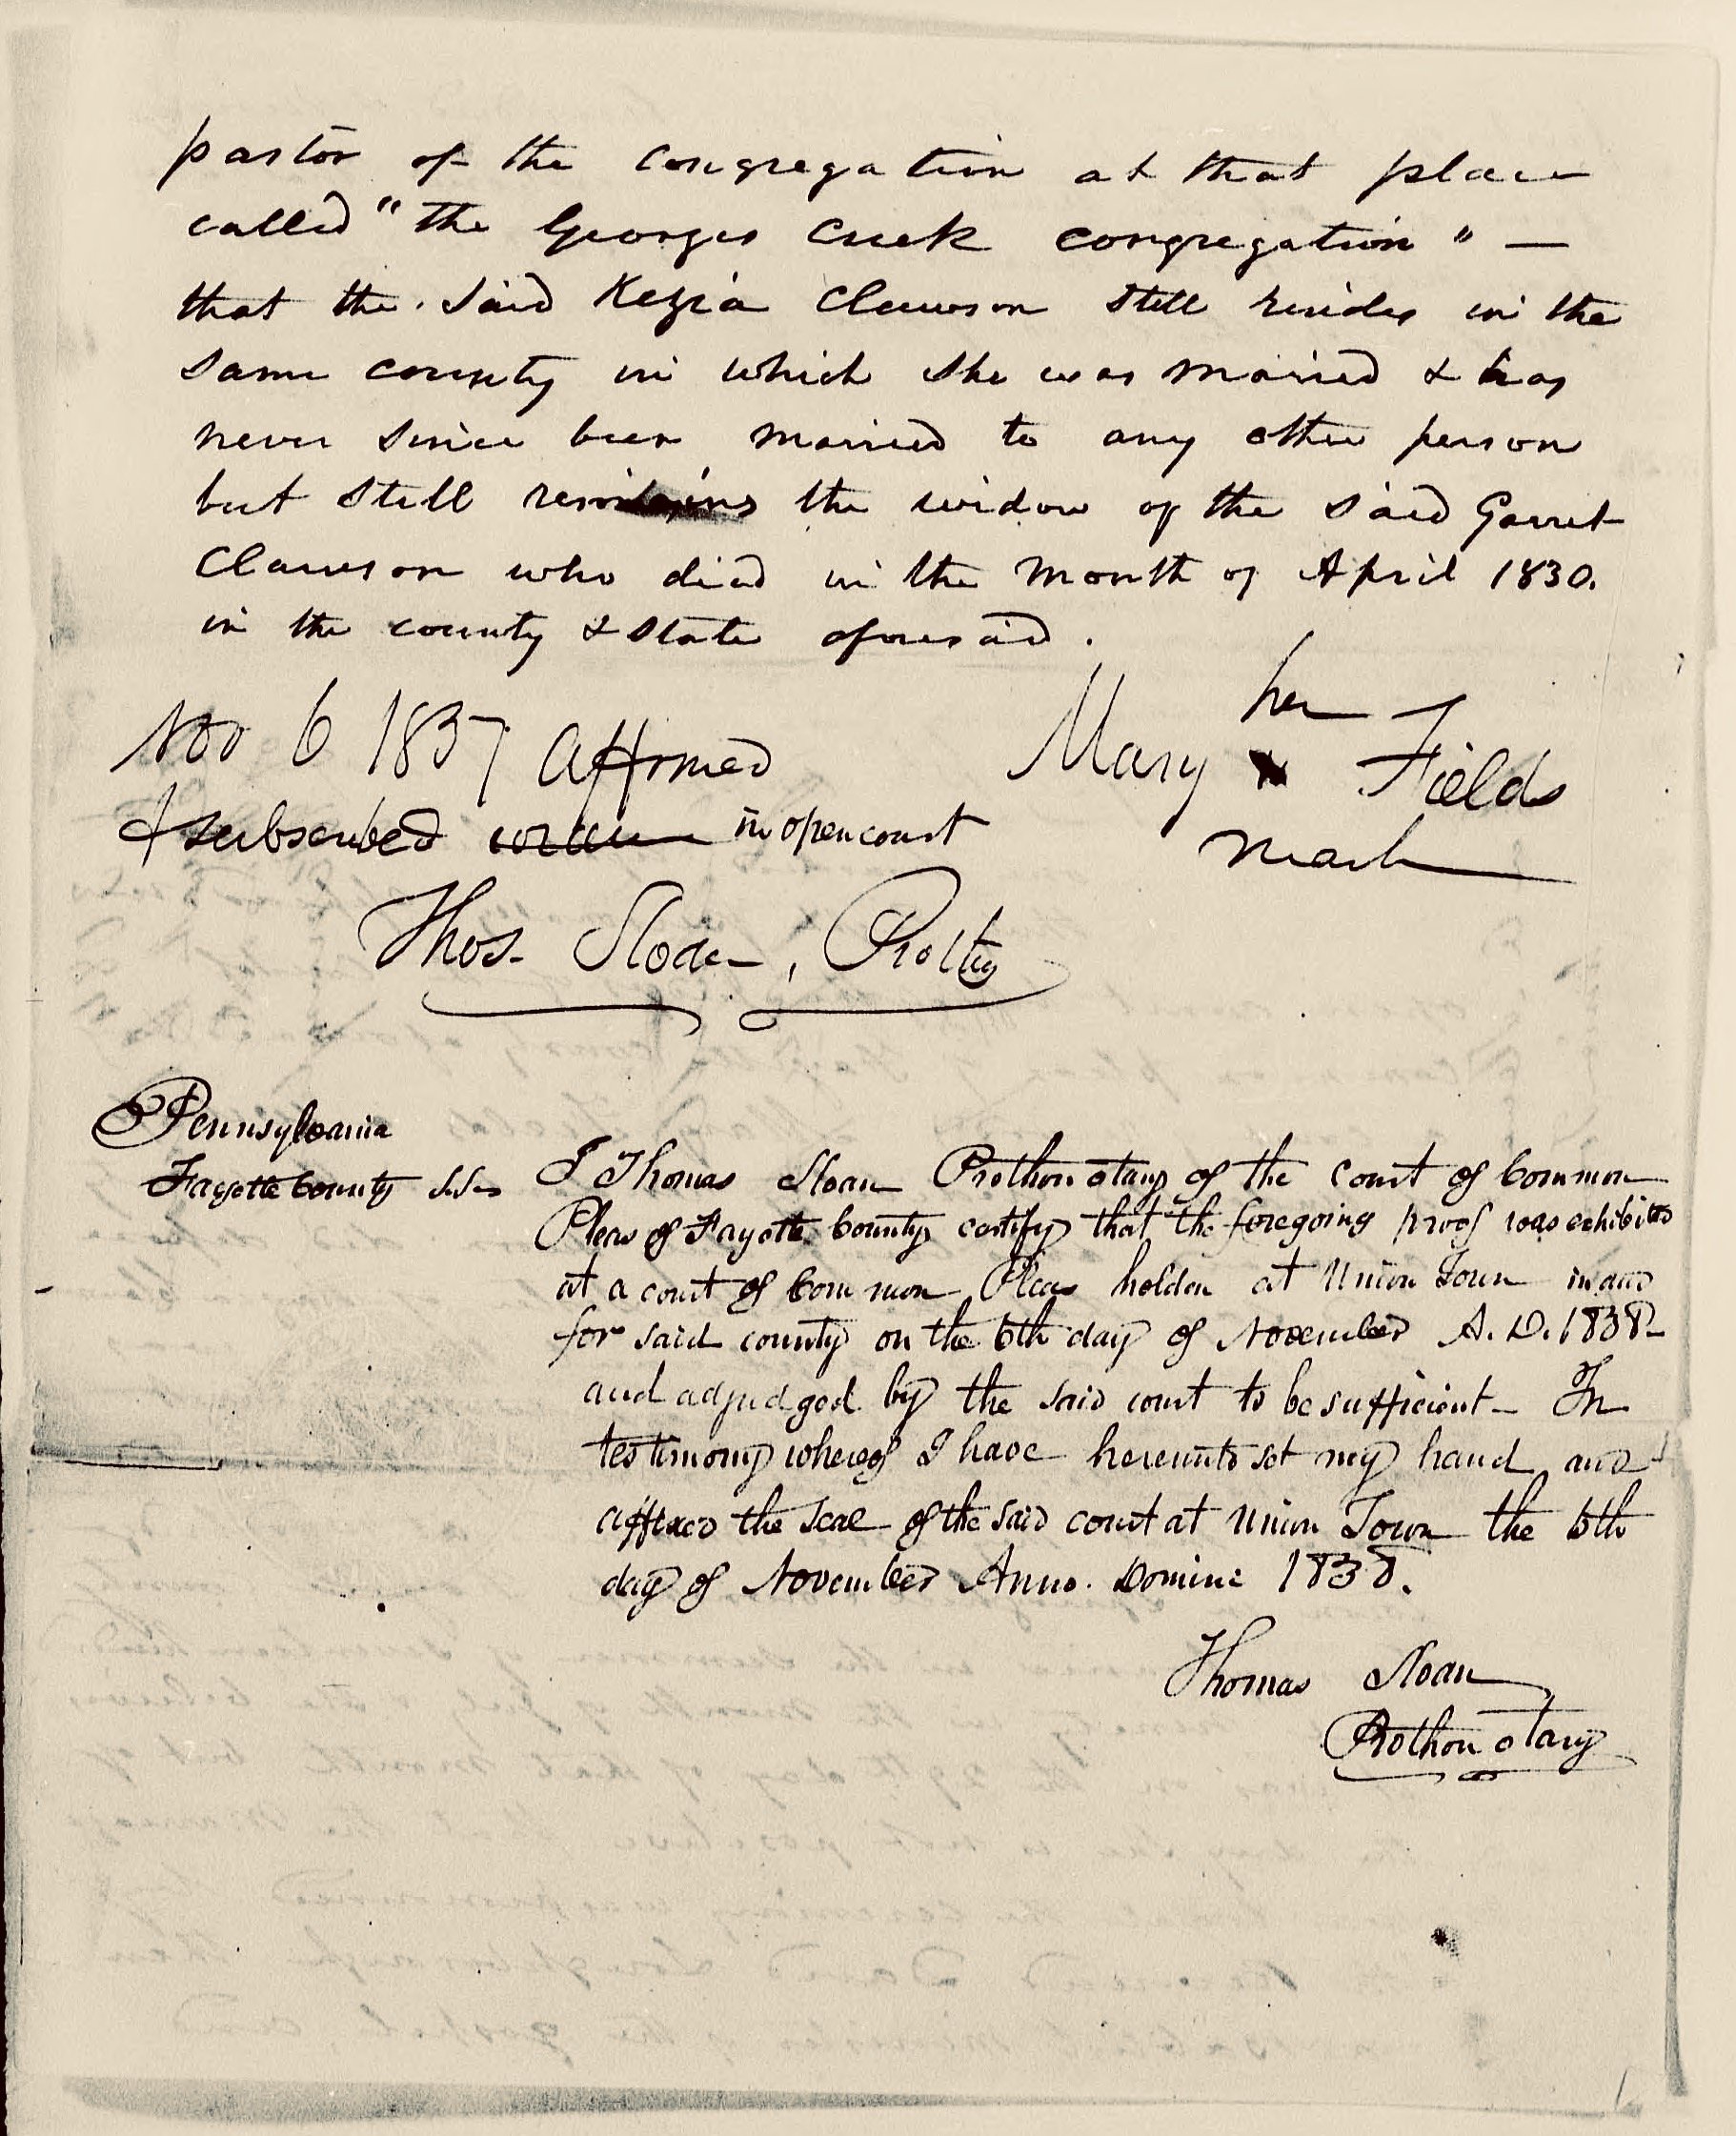 pastor of the congregation at that place
called "the Georges Creek congregation" —
that the said Kezia Clawson still resides in the
same county in which she was married & has
never since been married to any other person
but still remains the widow of the said Garret
Clawson who died in the month of April 1830.
in the county & state aforesaid.
her
Nov 6 1837 affirmed
Mary x Fields
& subscribed in open court
mark
Thos. Sloan, Prothy
Pennsylvania
Fayette County ss.
I Thomas Sloan Prothonotary of the court of Common
Pleas of Fayette County certify that the foregoing proof was exhibited
at a court of Common Pleas holden at Union Town in and
for said county on the 6th day of November A.D. 1838
and adjudged by the said court to be sufficient — In
testimony whereof I have hereunto set my hand and
affixed the seal of the said court at Union Town the 6th
day of November Anno. Domini 1838.
Thomas Sloan
Prothonotary